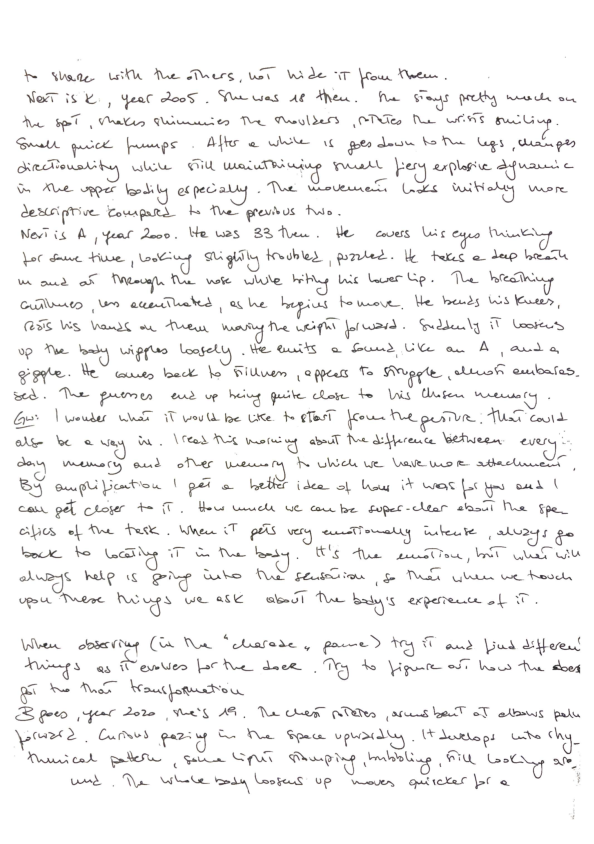 to share with the others, not hide it from them.
Next is K, year 2005. She was 18 then. She stays pretty much on
the spot, shakes shimmies the shoulders, rotates the wrists smiling.
Small quick jumps. After a while is goes down to the legs, changes
directionality while still maintaining small fiery explosive dynamic
in the upper bodily especially. The movement looks initially more
descriptive compared to the previous two.
Next is A, year 2000. He was 33 then. He covers his eyes thinking
for some time, looking slightly troubled, puzzled. He takes a deep breath
in and out through the nose while biting his lower lip. The breathing
continues, less accentuated, as he begins to move. He bends his knees,
rests his hands on them moving the weight forward. Suddenly it loosens
up the body wiggles loosely. He emits a sound, like an A, and a
giggle. He comes back to stillness, appears to struggle, almost embaras-
sed. The guesses end up being quite close to his chosen memory.
I wonder what it would be like to start from the gesture. That could
also be a way in. I read this morning about the difference between every-
day memory and other memory to which we have more attachment.
By amplification I get a better idea of how it was for you and I
can get closer to it. How much we can be super-clear about the spe
cifics of the task. When it gets very emotionally intense, always go
back to locating it in the body. It's the emotion, but what will
always help is going into the sensation, so that when we touch
upon these things we ask about the body's experience of it.
When observing (in the "charade" game) try it and find different
things as it evolves for the doer. Try to figure out how the doer
got to that transformation
B goes, year 2020, she's 19. The chest rotates, arms bent at elbows palm
forward. Curious gazing in the space upwardly. It develops into rhy-
thmical pattern, some light stamping, bubbling, still looking aro-
und. The whole body loosens up moves quicker for a